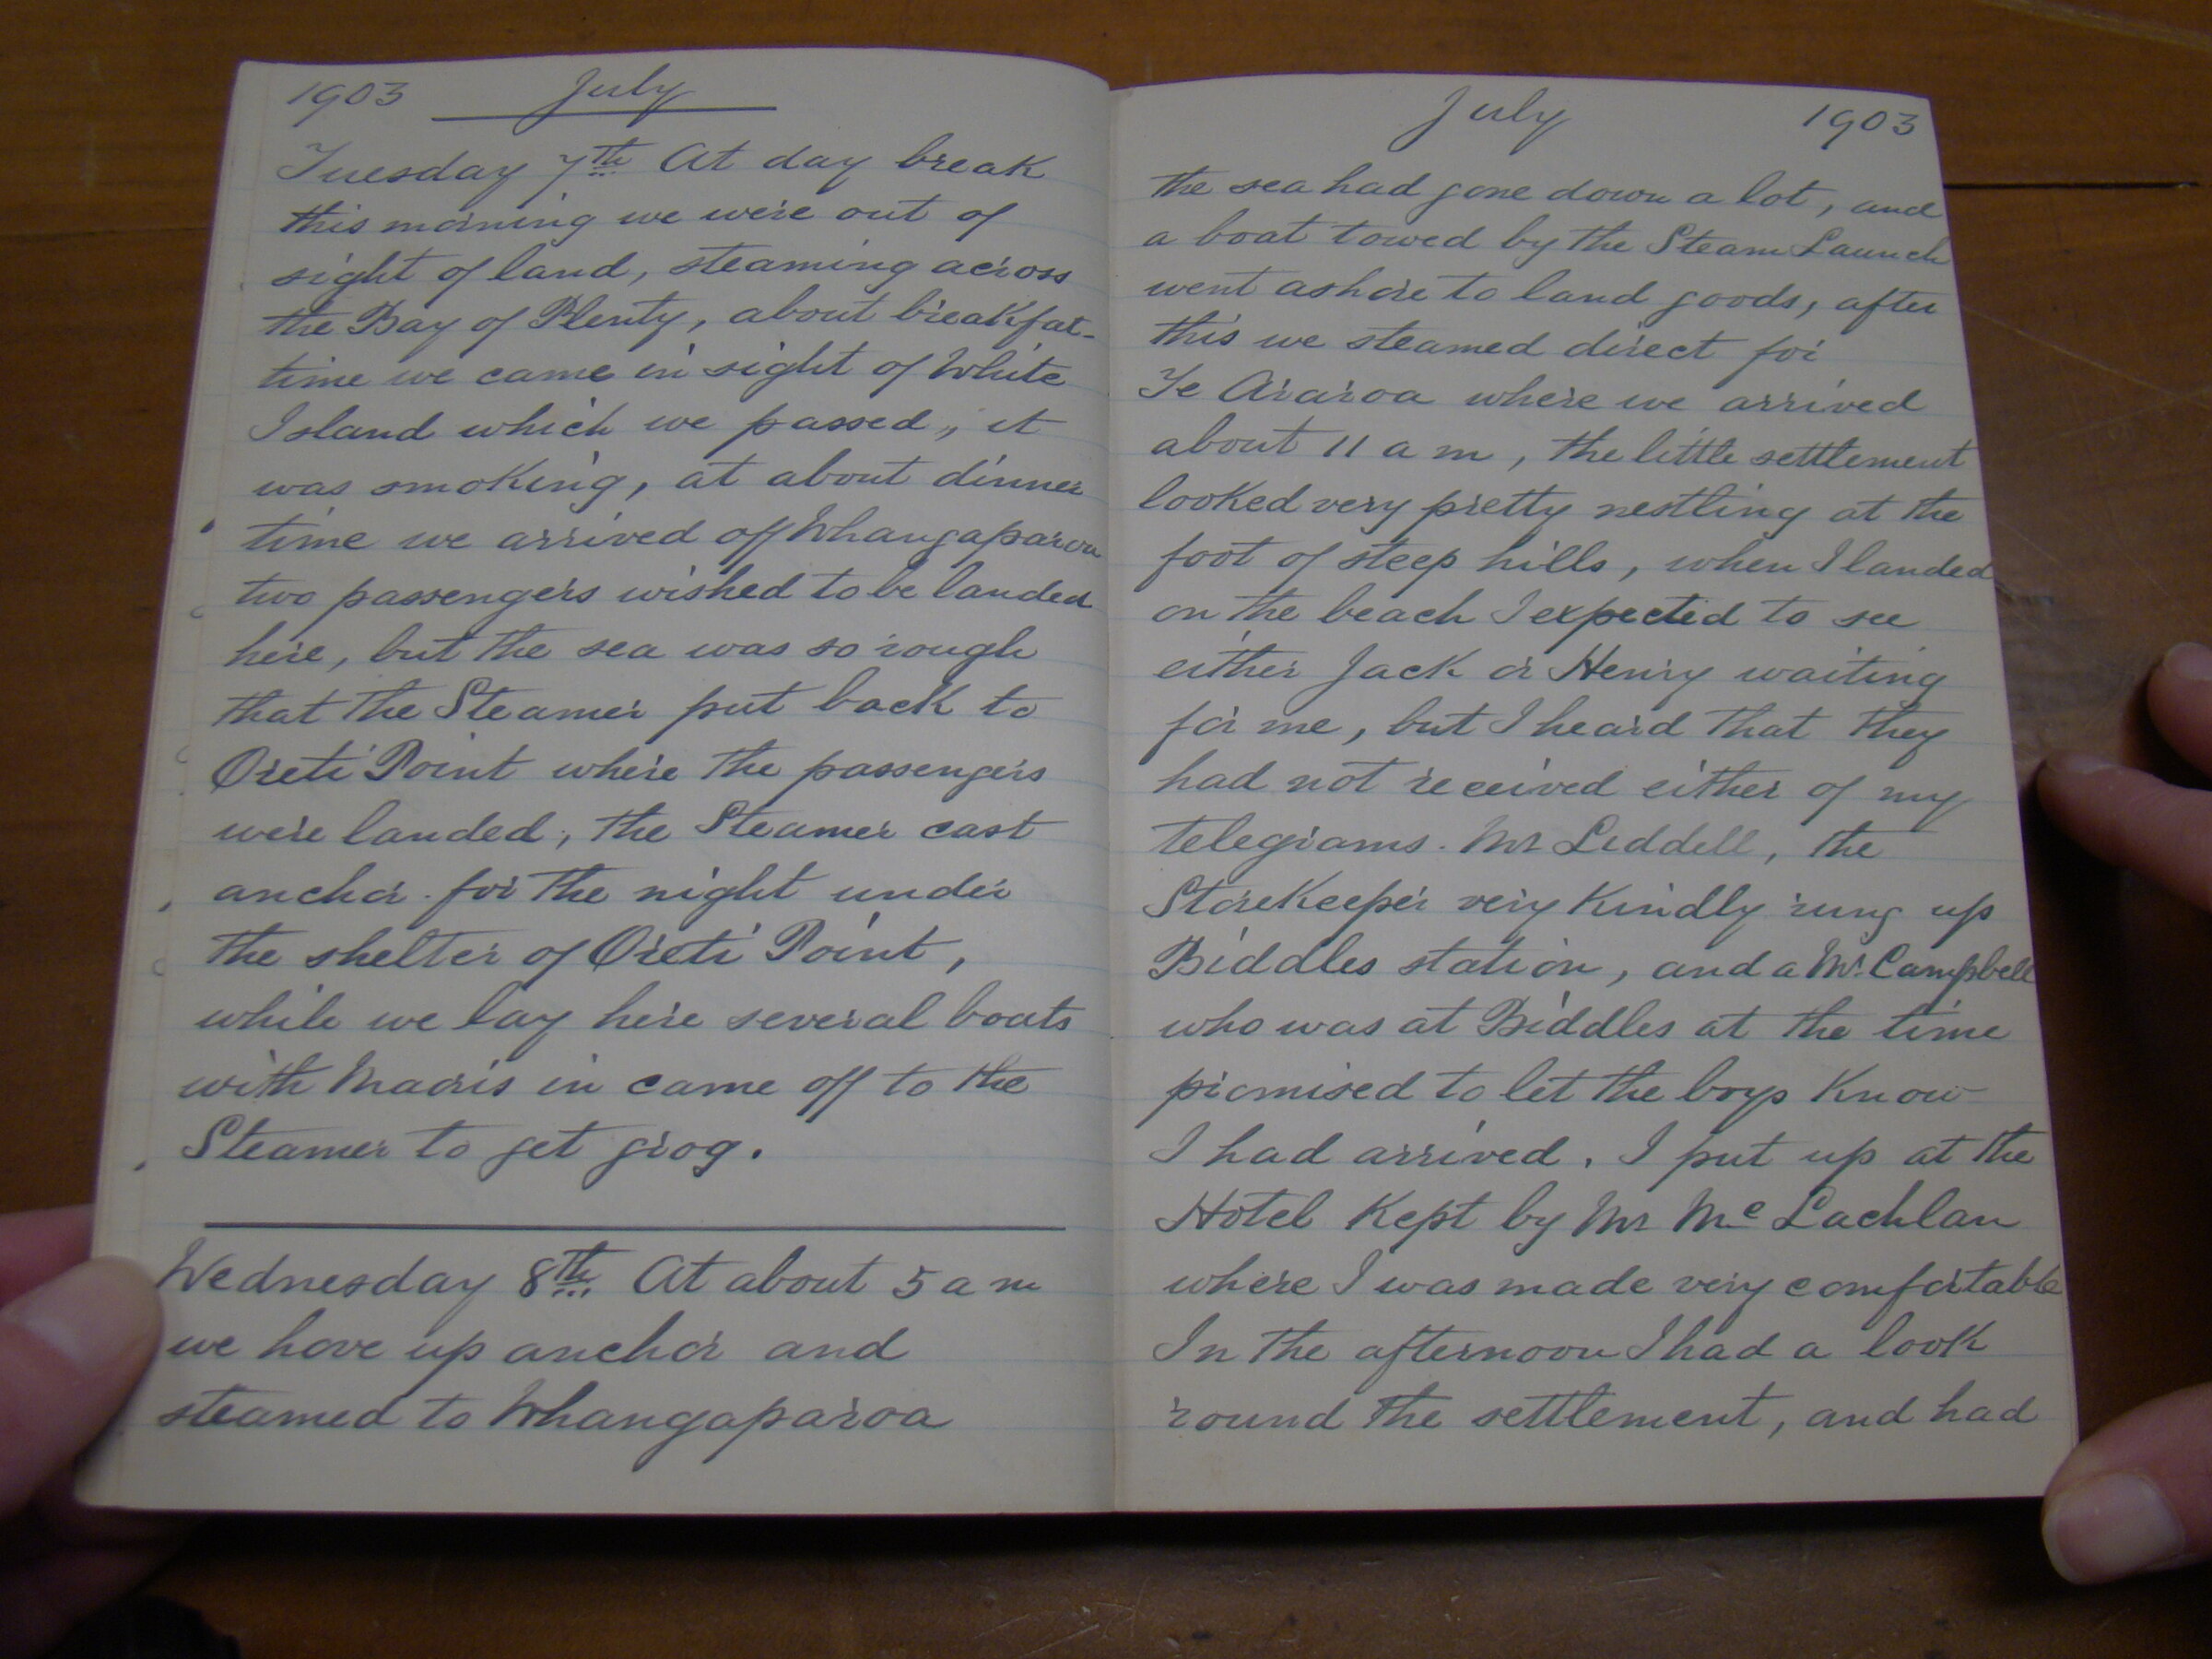 1903 July
Tuesday 7th At day break
this morning we were out of
sight of land, steaming across
the Bay of Plenty, about breakfat-
time we came in sight of White
Island which we passed, it
was smoking, at about dinner
time we arrived off Whangaparoa
two passengers wished to be landed
here, but the sea was so rough
that the Steamer put back to
Oreti Point where the passengers
were landed, the Steamer cast
anchor for the night under
the shelter of Oreti Point,
while we lay here several boats
with Maoris in came off to the
Steamer to get grog.
Wednesday 8th At about 5 a m
we hove up anchor and
steamed to Whangaparoa
July 1903
the sea had gone down a lot, and
a boat towed by the Steam Launch
went ashore to land goods, after
this we steamed direct for
Te Araroa where we arrived
about 11 a m, the little settlement
looked very pretty nestling at the
foot of steep hills, when I landed
on the beach I expected to see
either Jack or Henry waiting
for me, but I heard that they
had not received either of my
telegrams. Mr Liddell, the
Storekeeper very kindly rung up
Biddles station, and a Mr Campbell
who was at Biddles at the time
promised to let the boys know
I had arrived. I put up at the
Hotel kept by Mr Mc Lachlan
where I was made very comfortable
In the afternoon I had a look
round the settlement, and had